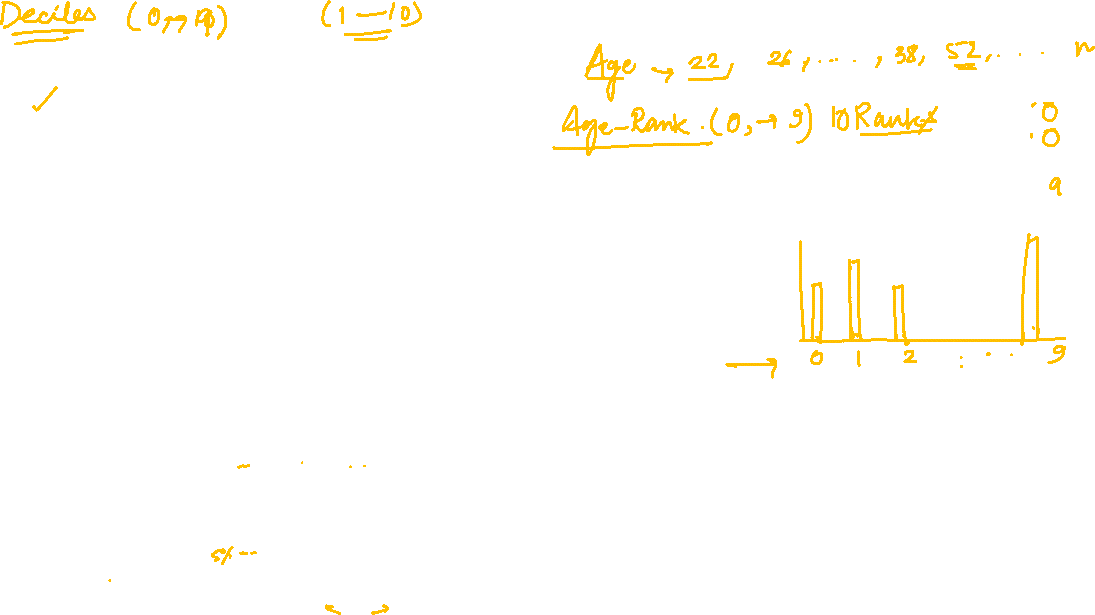 Deciles (0→9) (1—10)
Age → 22, 26, ...., 38, 52, .... n
Age-Rank. (0, → 9) 10 Ranks
0
0
9
0 1 2 : ... 9
5%--